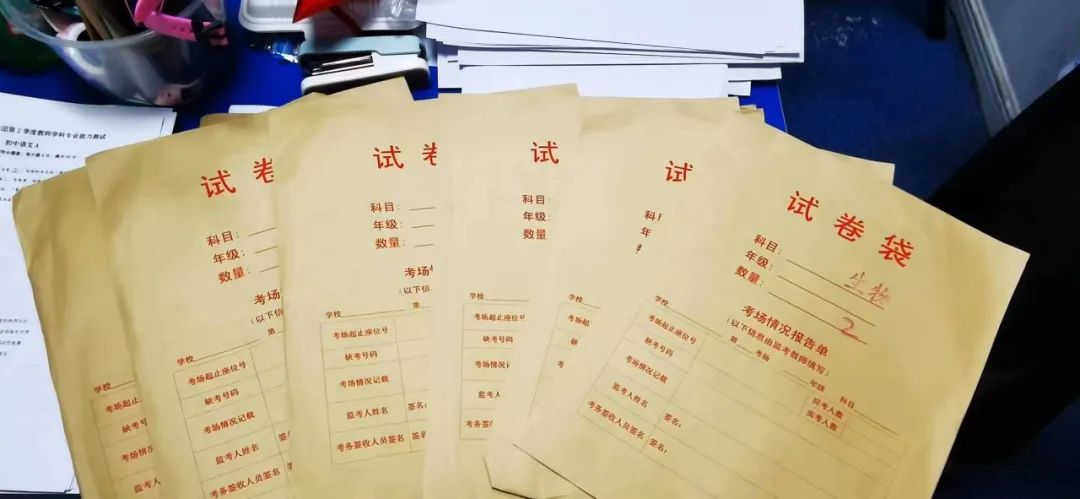 团第2季度教师学科专业能力测试
初中语文A
考场起
缺考号
考场情
监考人
试卷
科目:
年级:
数量:
考场
(以下
第
学校
考场起止座位号
缺考号码
考场情况记载
监考人姓名
考务签收人员签名
签名
签
试卷
科目:
年级:
数量:
考场情
(以下信
学校
第
考场起止座位号
缺考号码
考场情况记载
监考人姓名
签名:
考务签收人员签名
签名:
试
科目:
年级:
数量
学校
考场起止座位号
缺考号码
考场情况
监考人
考务签收人
试
科
年
学校
考场起
缺考
考场情
监考
考务签
试卷袋
科目:
年级:
生物
数量:
2
考场情况报告单
(以下信息由监考教师填写)
学校
第 考场 年级 科目
考场起止座位号
应考人数
实考人数
缺考号码
考场情况记载
监考人姓名
签名:
考务签收人员签名
签名: